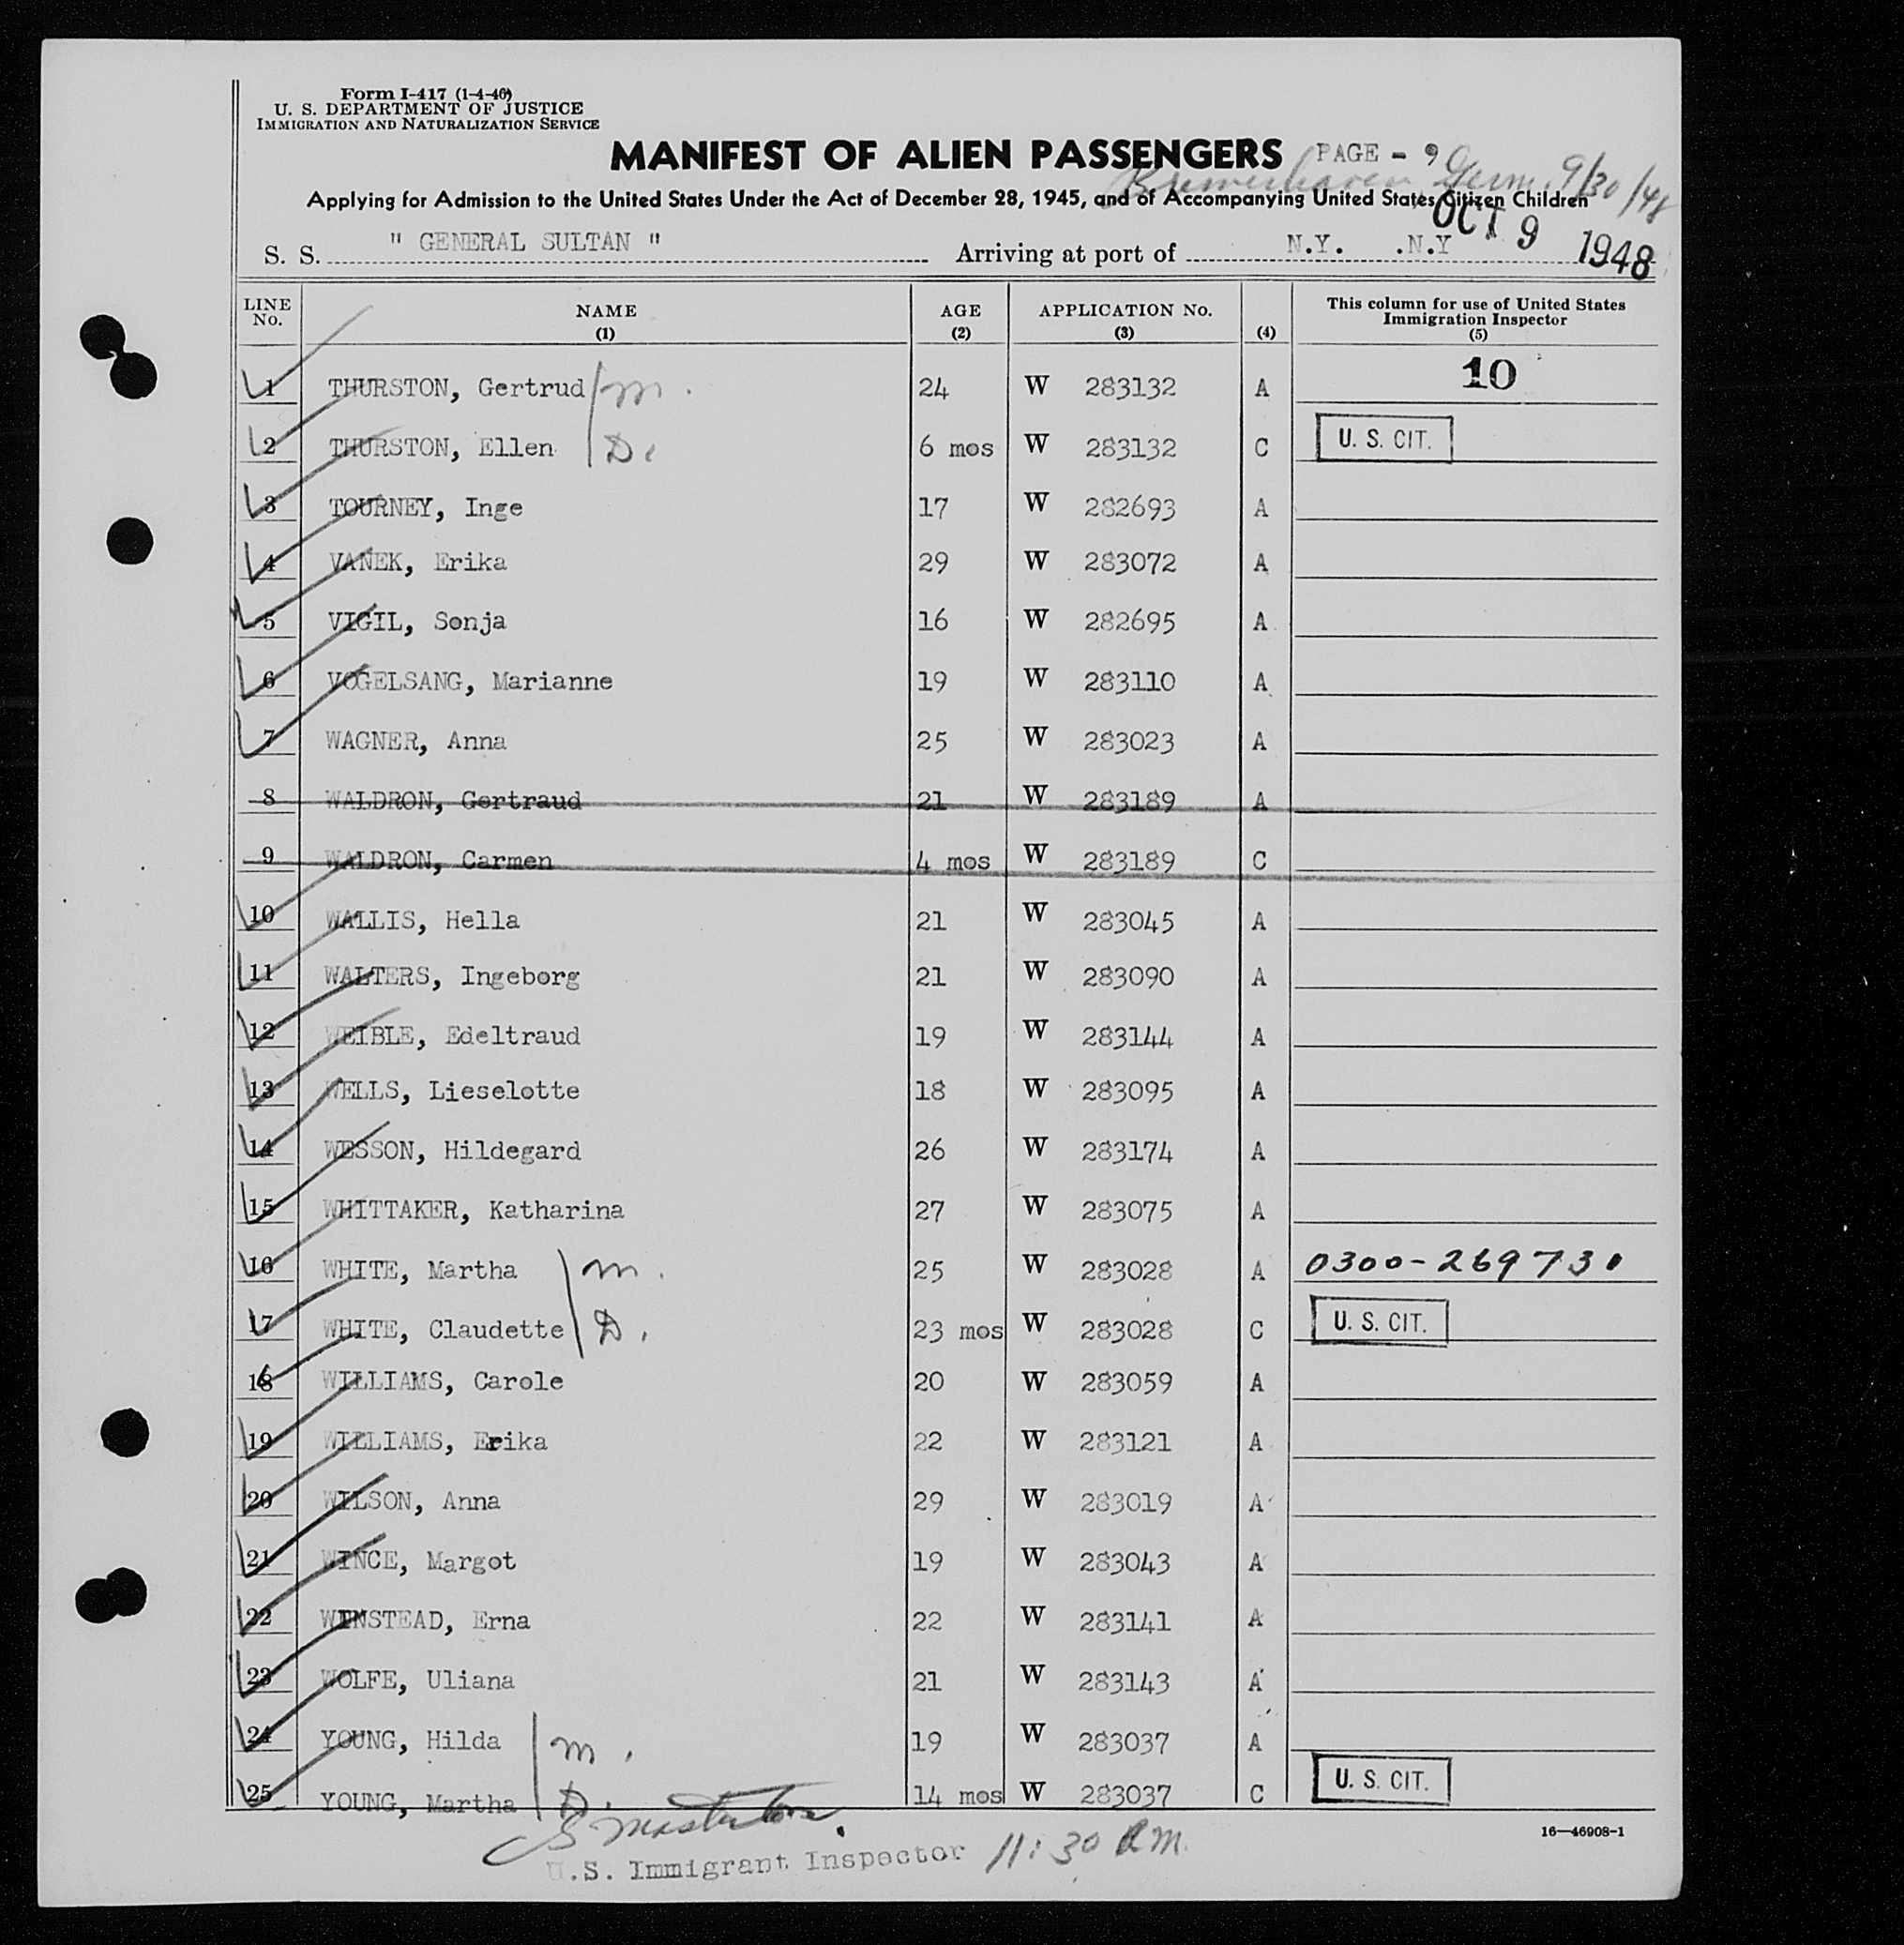 Form I-417 (1-4-46)
U. S. DEPARTMENT OF JUSTICE
IMMIGRATION AND NATURALIZATION SERVICE
MANIFEST OF ALIEN PASSENGERS PAGE - 9
Bremerhaven, Germ. 9/30/48
Applying for Admission to the United States Under the Act of December 28, 1945, and of Accompanying United States Citizen Children
S. S. " GENERAL SULTAN " Arriving at port of N.Y. .N.Y OCT 9 1948
LINE No. NAME (1) AGE (2) APPLICATION No. (3) (4) This column for use of United States Immigration Inspector (5)
10
1 THURSTON, Gertrud m. 24 W 283132 A
2 THURSTON, Ellen D. 6 mos W 283132 C U. S. CIT.
3 TOURNEY, Inge 17 W 282693 A
4 VANEK, Erika 29 W 283072 A
5 VIGIL, Sonja 16 W 282695 A
6 VOGELSANG, Marianne 19 W 283110 A
7 WAGNER, Anna 25 W 283023 A
8 WALDRON, Gertraud 21 W 283189 A
9 WALDRON, Carmen 4 mos W 283189 C
10 WALLIS, Hella 21 W 283045 A
11 WALTERS, Ingeborg 21 W 283090 A
12 WEIBLE, Edeltraud 19 W 283144 A
13 WELLS, Lieselotte 18 W 283095 A
14 WESSON, Hildegard 26 W 283174 A
15 WHITTAKER, Katharina 27 W 283075 A
16 WHITE, Martha m. 25 W 283028 A 0300-269730
17 WHITE, Claudette D. 23 mos W 283028 C U. S. CIT.
18 WILLIAMS, Carole 20 W 283059 A
19 WILLIAMS, Erika 22 W 283121 A
20 WILSON, Anna 29 W 283019 A
21 WINCE, Margot 19 W 283043 A
22 WINSTEAD, Erna 22 W 283141 A
23 WOLFE, Uliana 21 W 283143 A
24 YOUNG, Hilda m. 19 W 283037 A
25 YOUNG, Martha D. 14 mos W 283037 C U. S. CIT.
16—46908-1
U.S. Immigrant Inspector 11:30 AM.